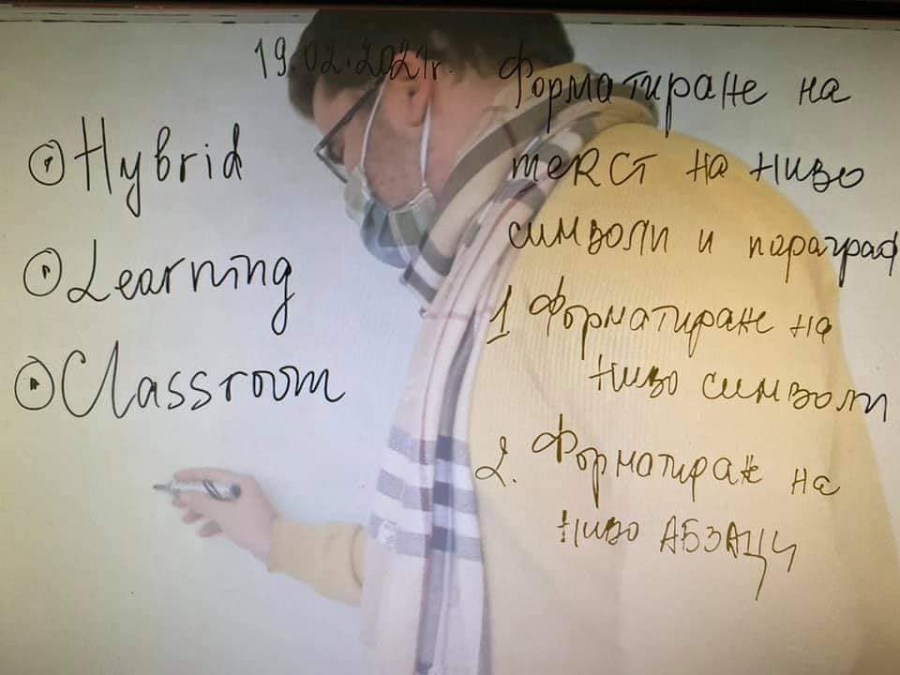 19.02.2021г.
Hybrid
Learning
Classroom
Форматиране на
текст на ниво
символи и параграф
1 Форматиране на
ниво символи
2. Форматиране на
ниво АБЗАЦИ